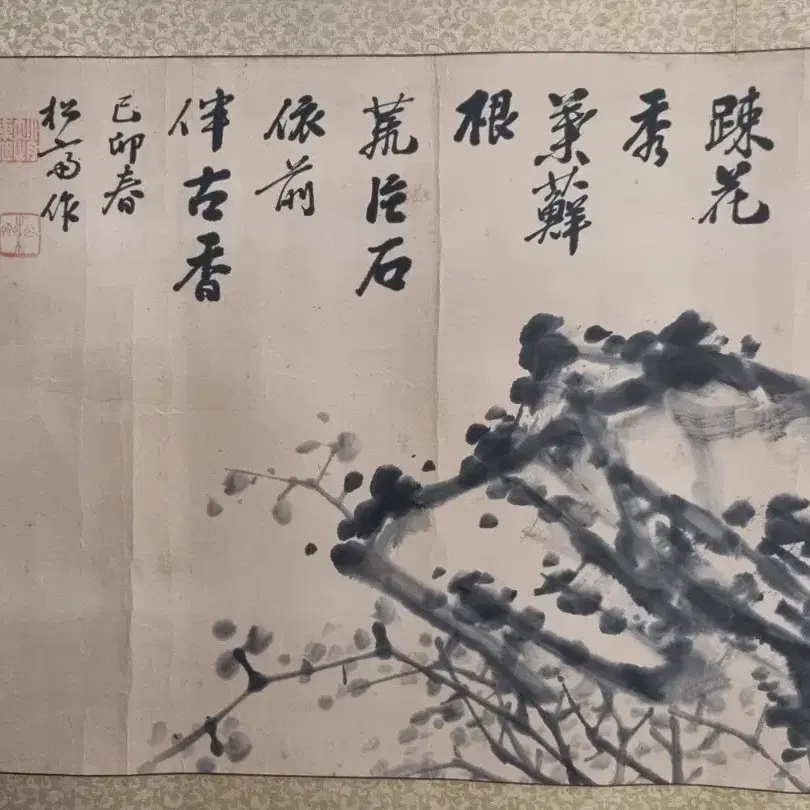 踈花
秀
葉蘚
根
荒石
依前
伴古香
己卯春
松作